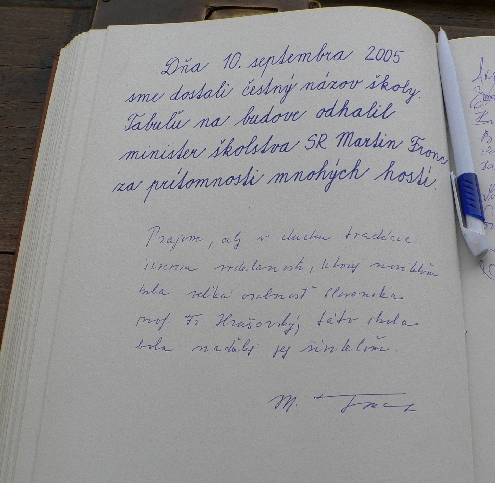 Dňa 10. septembra 2005
sme dostali čestný názov školy.
Tabuľu na budove odhalil
minister školstva SR Martin Fronc
za prítomnosti mnohých hostí.
Prajem, aby v duchu tradície
šírenia vzdelanosti, ktorej nositeľom
bola veľká osobnosť Slovenska
prof. Fr. Hrušovský, táto škola
bola naďalej jej šíriteľom.
M. Fronc